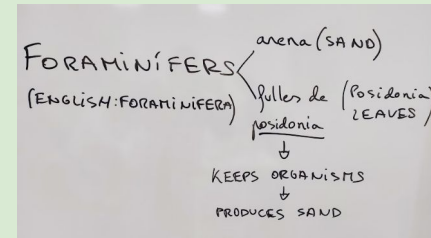 FORAMINÍFERS
(ENGLISH: FORAMINIFERA)
arena (SAND)
fulles de posidonia (Posidonia LEAVES)
↓
KEEPS ORGANISMS
↓
PRODUCES SAND